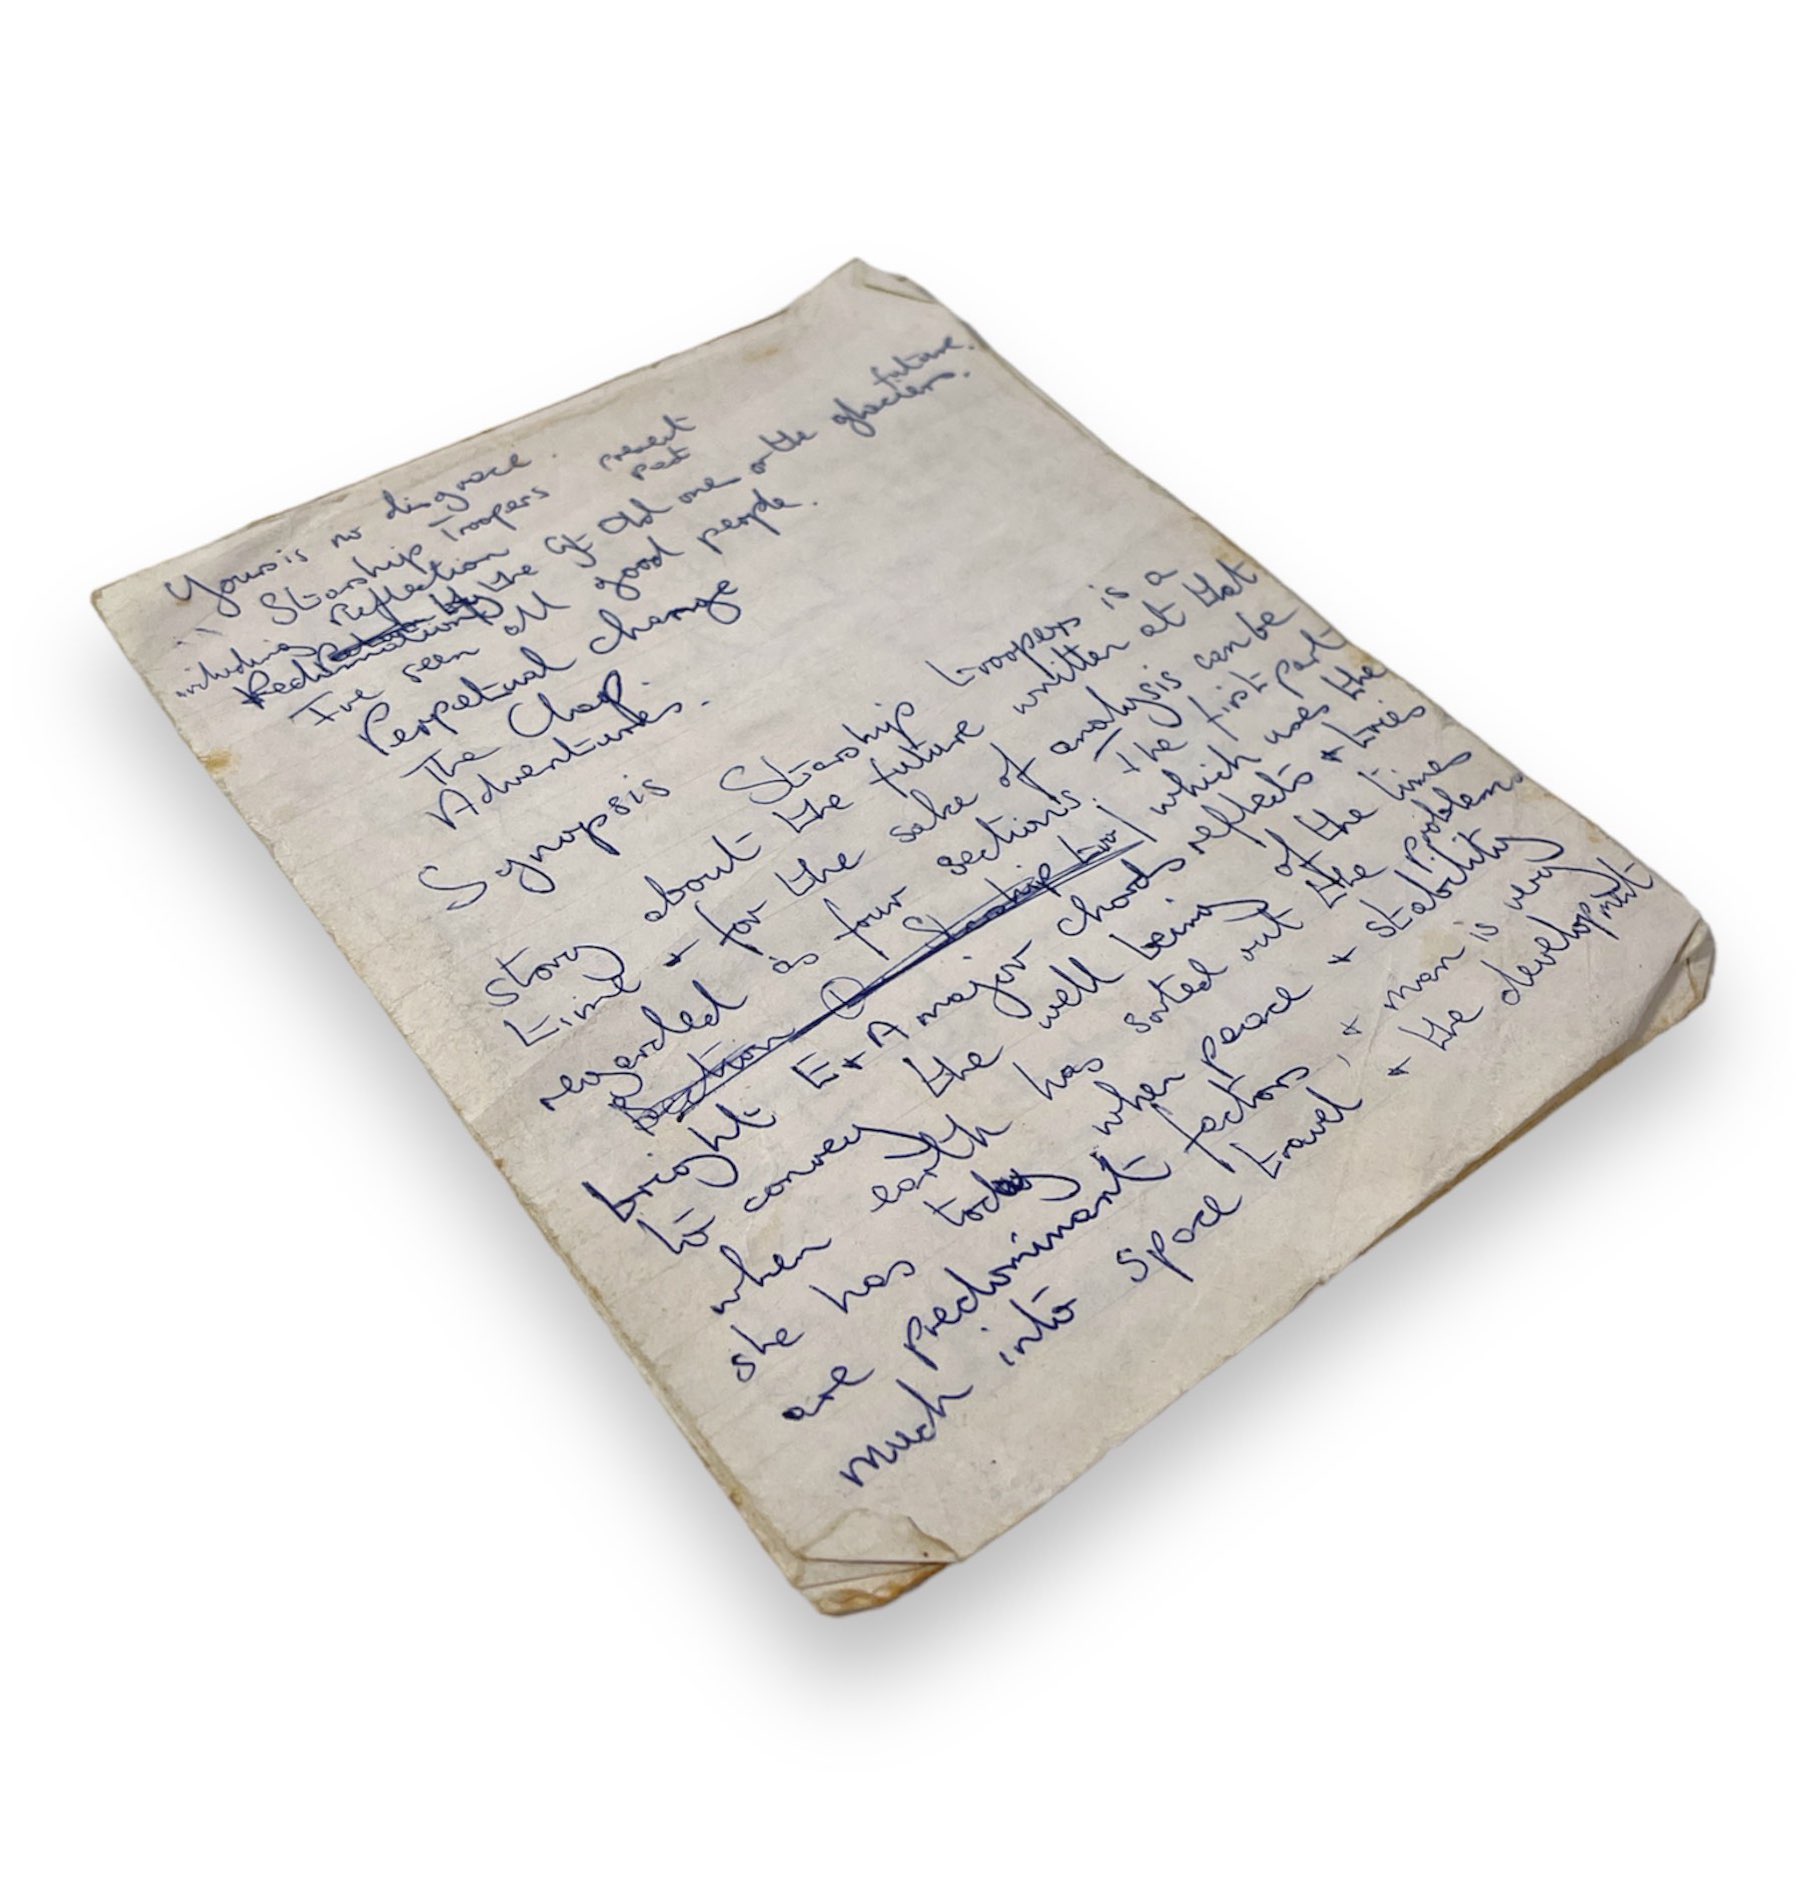 Yours is no disgrace.
" Starship Troopers present
past future.
including reflection
by the Gt Old one on the glaciers.
I've seen all good people.
Perpetual change
The Clap.
Adventures.
Synopsis Starship troopers is a
story about the future written at that
time + for the sake of analysis can be
regarded as four sections. The first part
Section ① Starship Troo which uses the
bright E + A major chords reflects + tries
to convey the well being of the times
when earth has sorted out the problems
she has today when peace + stability
are predominant factors, + man is very
much into space travel + the development